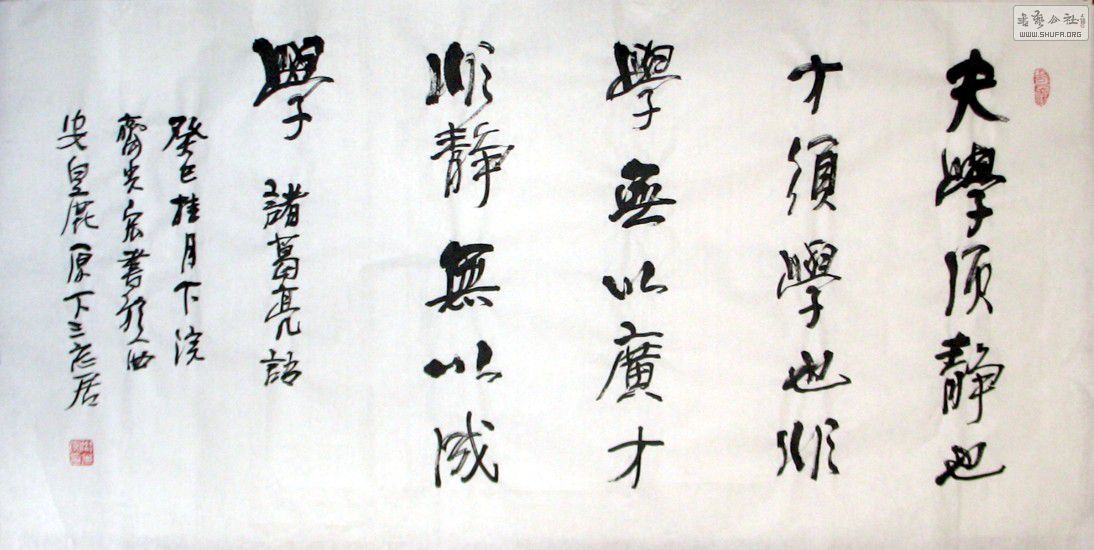 夫學須静也
才須學也非
學無以廣才
非静無以成
學 諸葛亮語
癸巳桂月下浣
齋 書於西
安皇鹿原下三 居
書藝公社
WWW.SHUFA.ORG